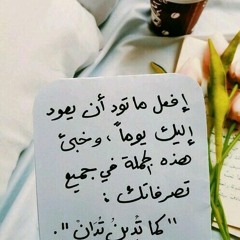 إفعل ما تود أن يعود
إليك يوماً ، وخبئ
هذه الجملة في جميع
تصرفاتك :
"كما تُدِينُ تُدَانْ".